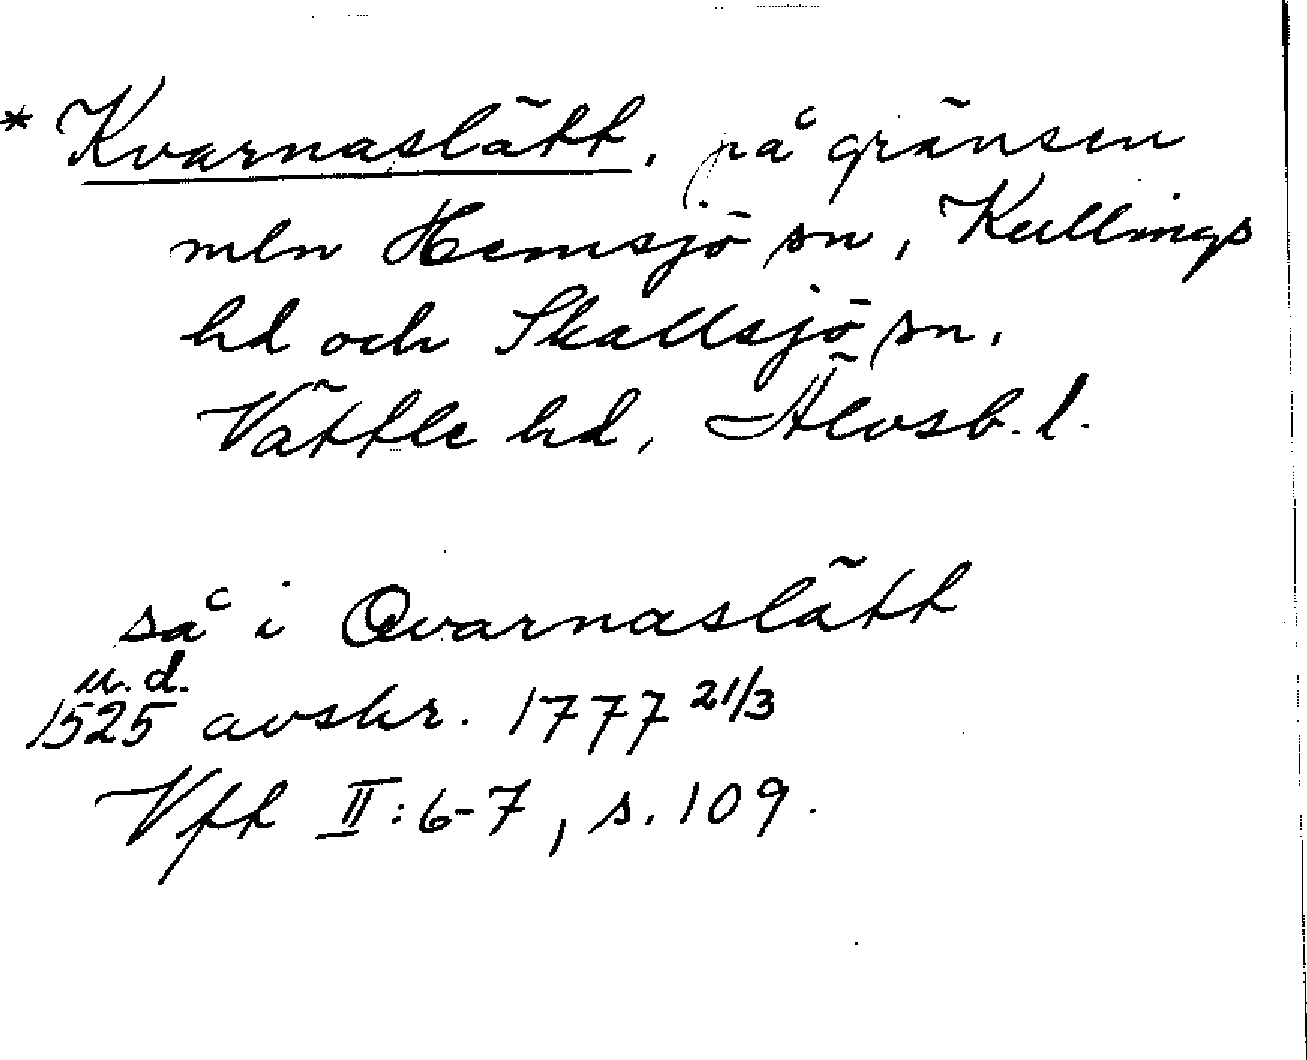 * Kvarnaslätt, på gränsen
mln Hemsjö sn, Kullings
hd och Skallsjö sn,
Vättle hd, Älvsb. l.
så i Qvarnaslätt
u. d.
1525 avskr. 1777 21/3
Vft II:6-7, s. 109.